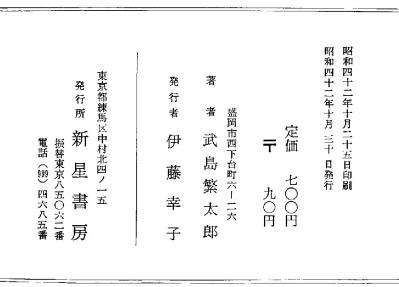 昭和四十二年十月二十五日印刷
昭和四十二年十月三十日発行
定価 七〇〇円
〒 九〇円
盛岡市西下台町六ー二六
著者 武島繁太郎
発行者 伊藤幸子
東京都練馬区中村北四ノ一五
発行所 新星書房
振替東京八五〇六二番
電話(999)四六八五番